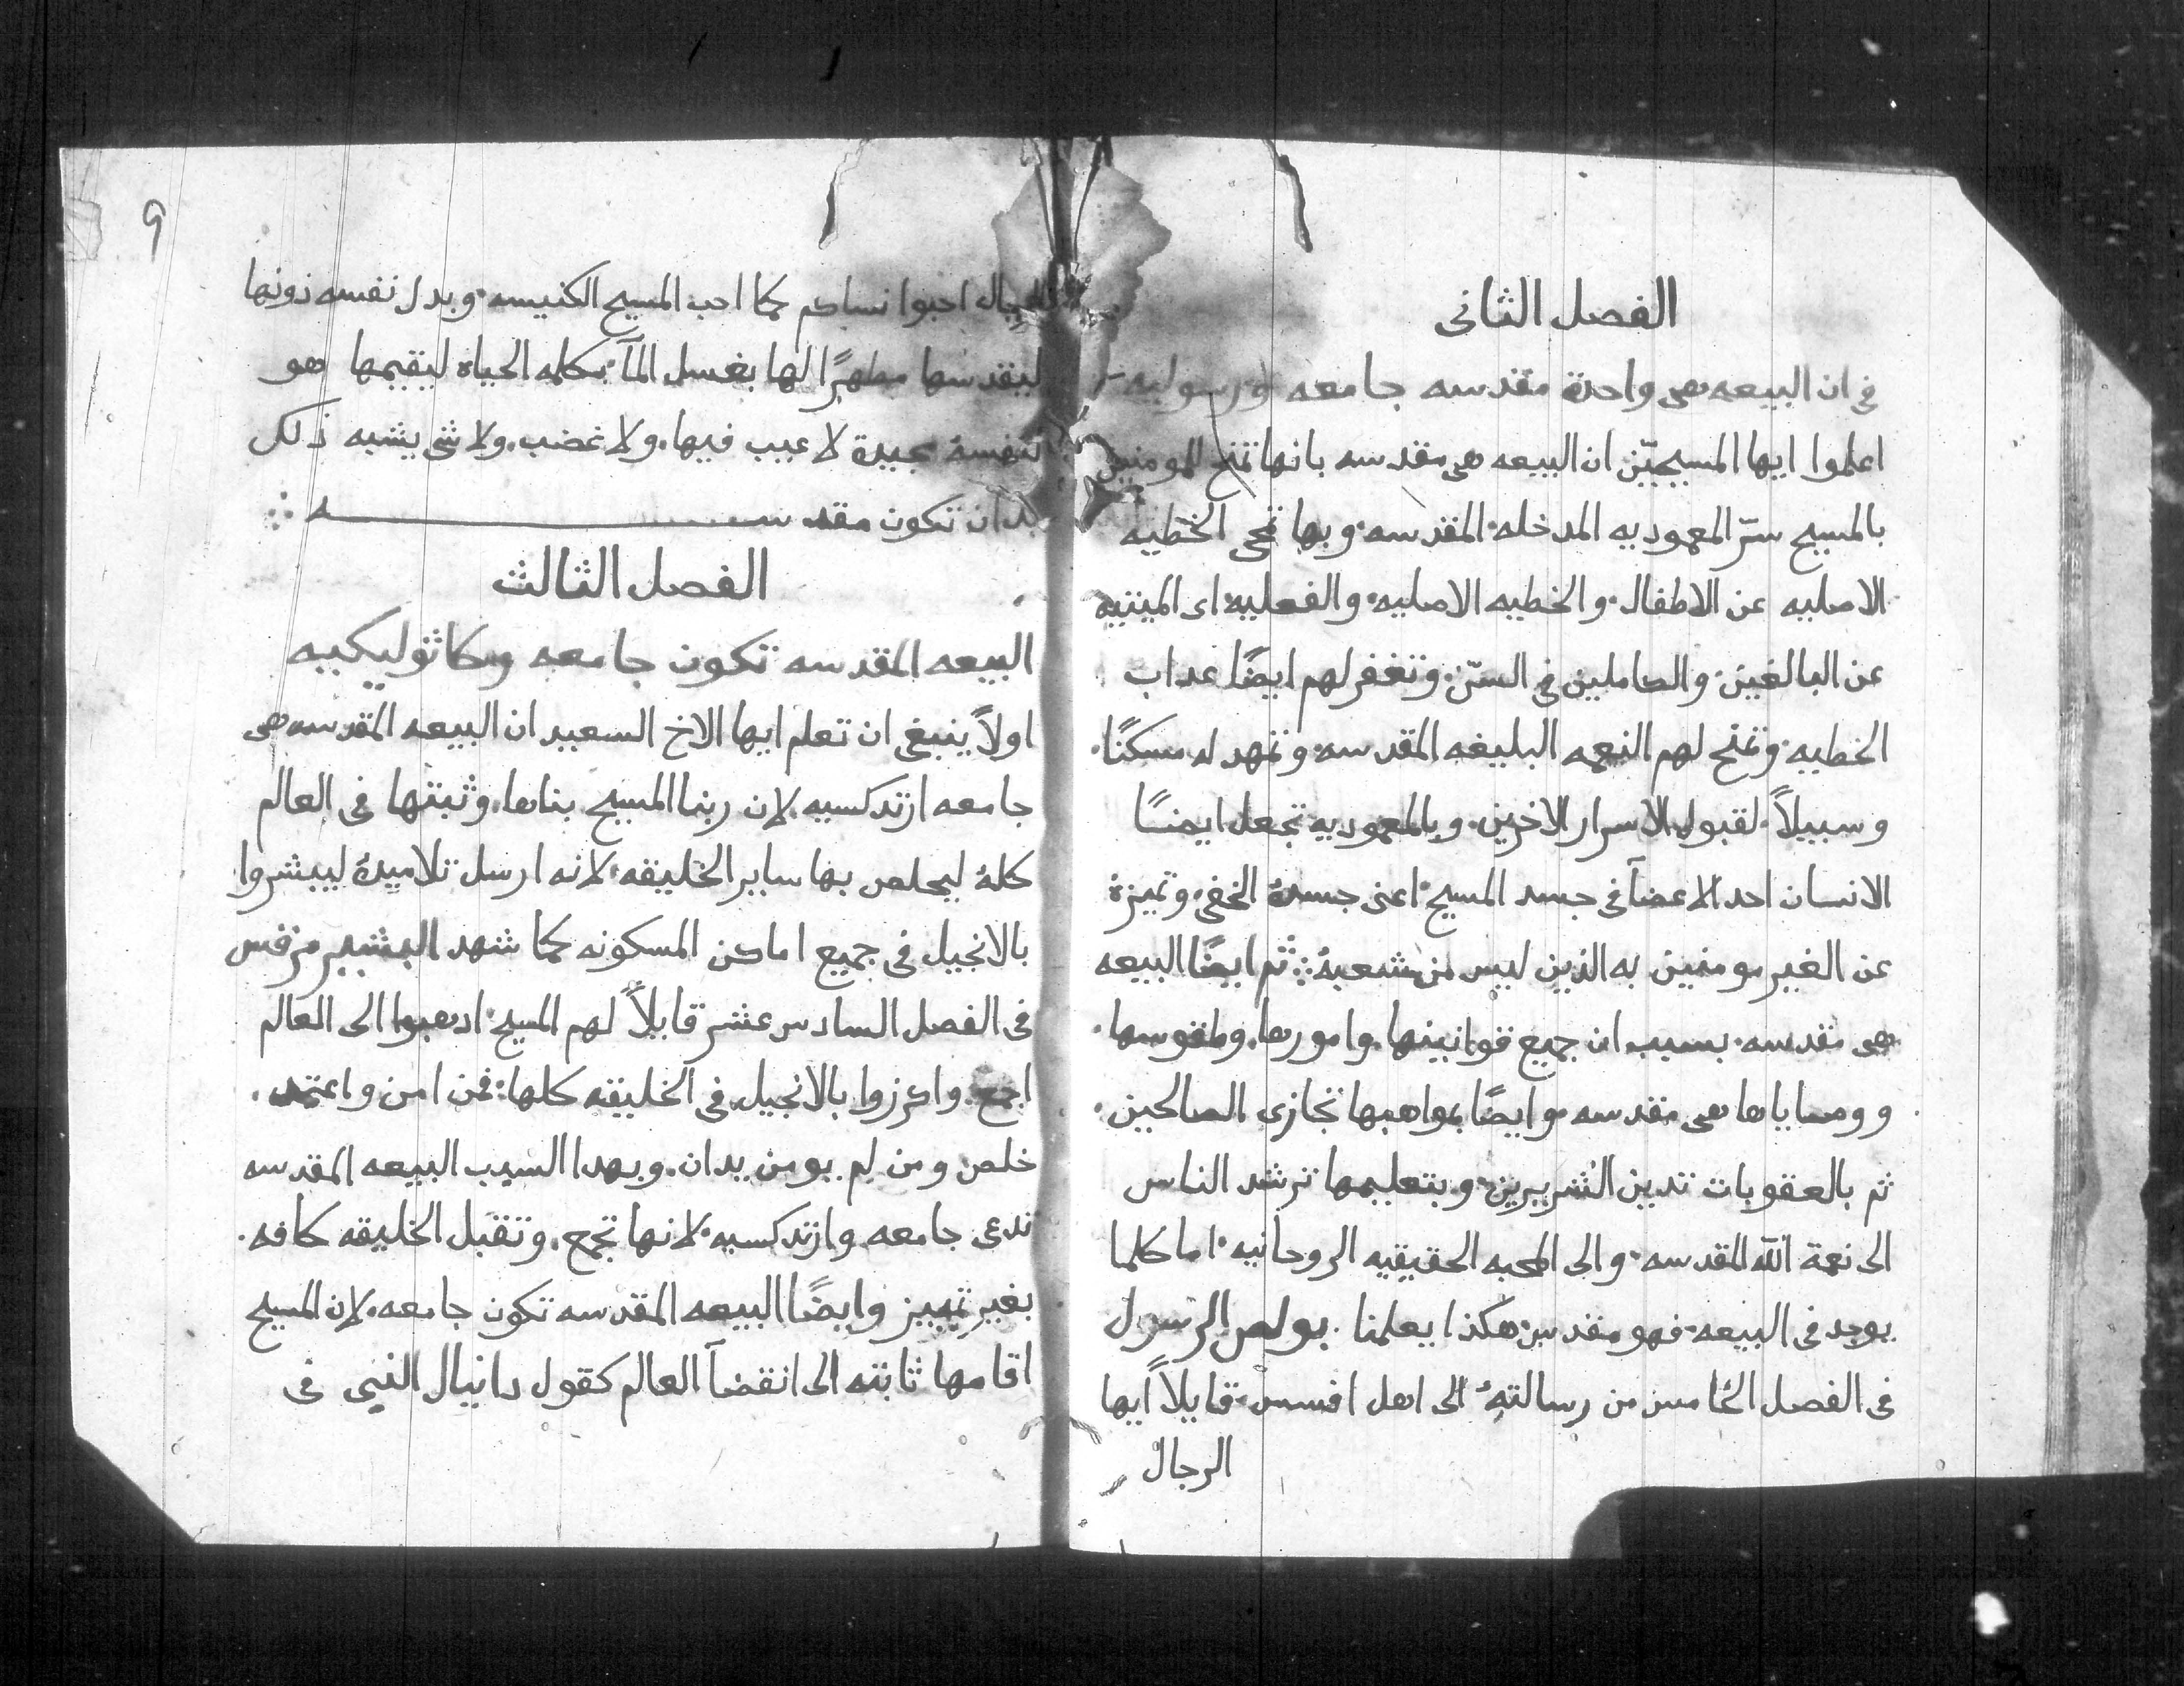 الفصل الثانى
في ان البيعه هى واحدة مقدسه جامعه ورسوليه
اعلموا ايها المسيحيّين ان البيعه هى مقدسه بانها تمنح للمومنين
بالمسيح سرّ المعموديه المدخله المقدسه وبها تمحى الخطيه
الاصليه عن الاطفال والخطيه الاصليه والفعليه اى الميتيه
عن البالغين والكاملين في السنّ وتغفر لهم ايضًا عداب
الخطيه وتمنح لهم النعمه البليغه المقدسه وتمهد له مسكنًا
وسبيلاً لقبول الاسرار الاخرين وبالمعموديه تجعل ايضًا
الانسان احد الاعضآ في جسد المسيح اعنى جسدهُ الخفي وتميزهُ
عن الغير مومنين به الذين ليس من شعبهُ ثم ايضًا البيعه
هى مقدسه بسبب ان جميع قوانينها وامورها وطقوسها
ووصاياها هى مقدسه وايضًا بمواهبها تجازى الصالحين
ثم بالعقوبات تدين الشريرين وبتعليمها ترشد الناس
الى نعمة الله المقدسه والى المحبه الحقيقيه الروحانيه اما كلما
يوجد فى البيعه فهو مقدس هكذا يعلمنا بولص الرسول
فى الفصل الخامس من رسالتهِ الى اهل افسس قايلاً ايها
الرجال
٩
الرجال احبوا نساكم كما احب المسيح الكنيسه وبدل نفسه دونها
ليقدسها مطهرًا لها بغسل المآ بكلمه الحياه ليقيمها هو
لنفسهُ مجيدة لا عيب فيها ولا غضب ولا شى يشبه ذلك
بد ان تكون مقدسه
الفصل الثالث
البيعه المقدسه تكون جامعه وكاثوليكيه
اولاً ينبغى ان تعلم ايها الاخ السعيد ان البيعه المقدسه هى
جامعه ارتدكسيه لان ربنا المسيح بناها وثبتها فى العالم
كلهُ ليخلص بها ساير الخليقه لانه ارسل تلاميدهُ ليبشروا
بالانجيل فى جميع اماكن المسكونه كما شهد البشير مرقس
فى الفصل السادس عشر قايلاً لهم المسيح ادهبوا الى العالم
اجمع واكرزوا بالانجيل فى الخليقه كلها فمن امن واعتمد
خلص ومن لم يومن يدان وبهدا السبب البيعه المقدسه
تدعى جامعه وارتدكسيه لانها تجمع وتقبل الخليقه كافه
بغير تمييز وايضًا البيعه المقدسه تكون جامعه لان المسيح
اقامها ثابته الى انقضآ العالم كقول دانيال النبى فى